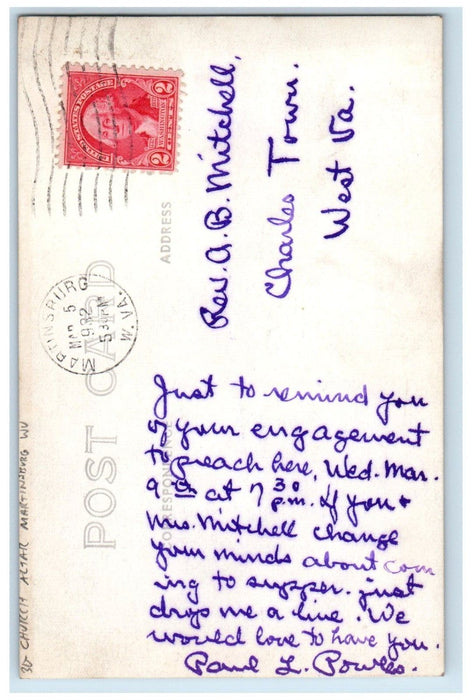 UNITED STATES POSTAGE
2 CENTS 2
WASHINGTON
MARTINSBURG
MAR 5
1932
5 30 PM
W. VA.
POST CARD
ADDRESS
CORRESPONDENCE
Rev. A. B. Mitchell,
Charles Town.
West Va.
Just to remind you
of your engagement
to preach here, Wed. Mar.
9th at 7 30 p.m. If you +
Mrs. Mitchell change
your minds about com
ing to supper. just
drop me a line. We
would love to have you.
Paul L. Powles.
CHURCH ALTAR MARTINSBURG WV